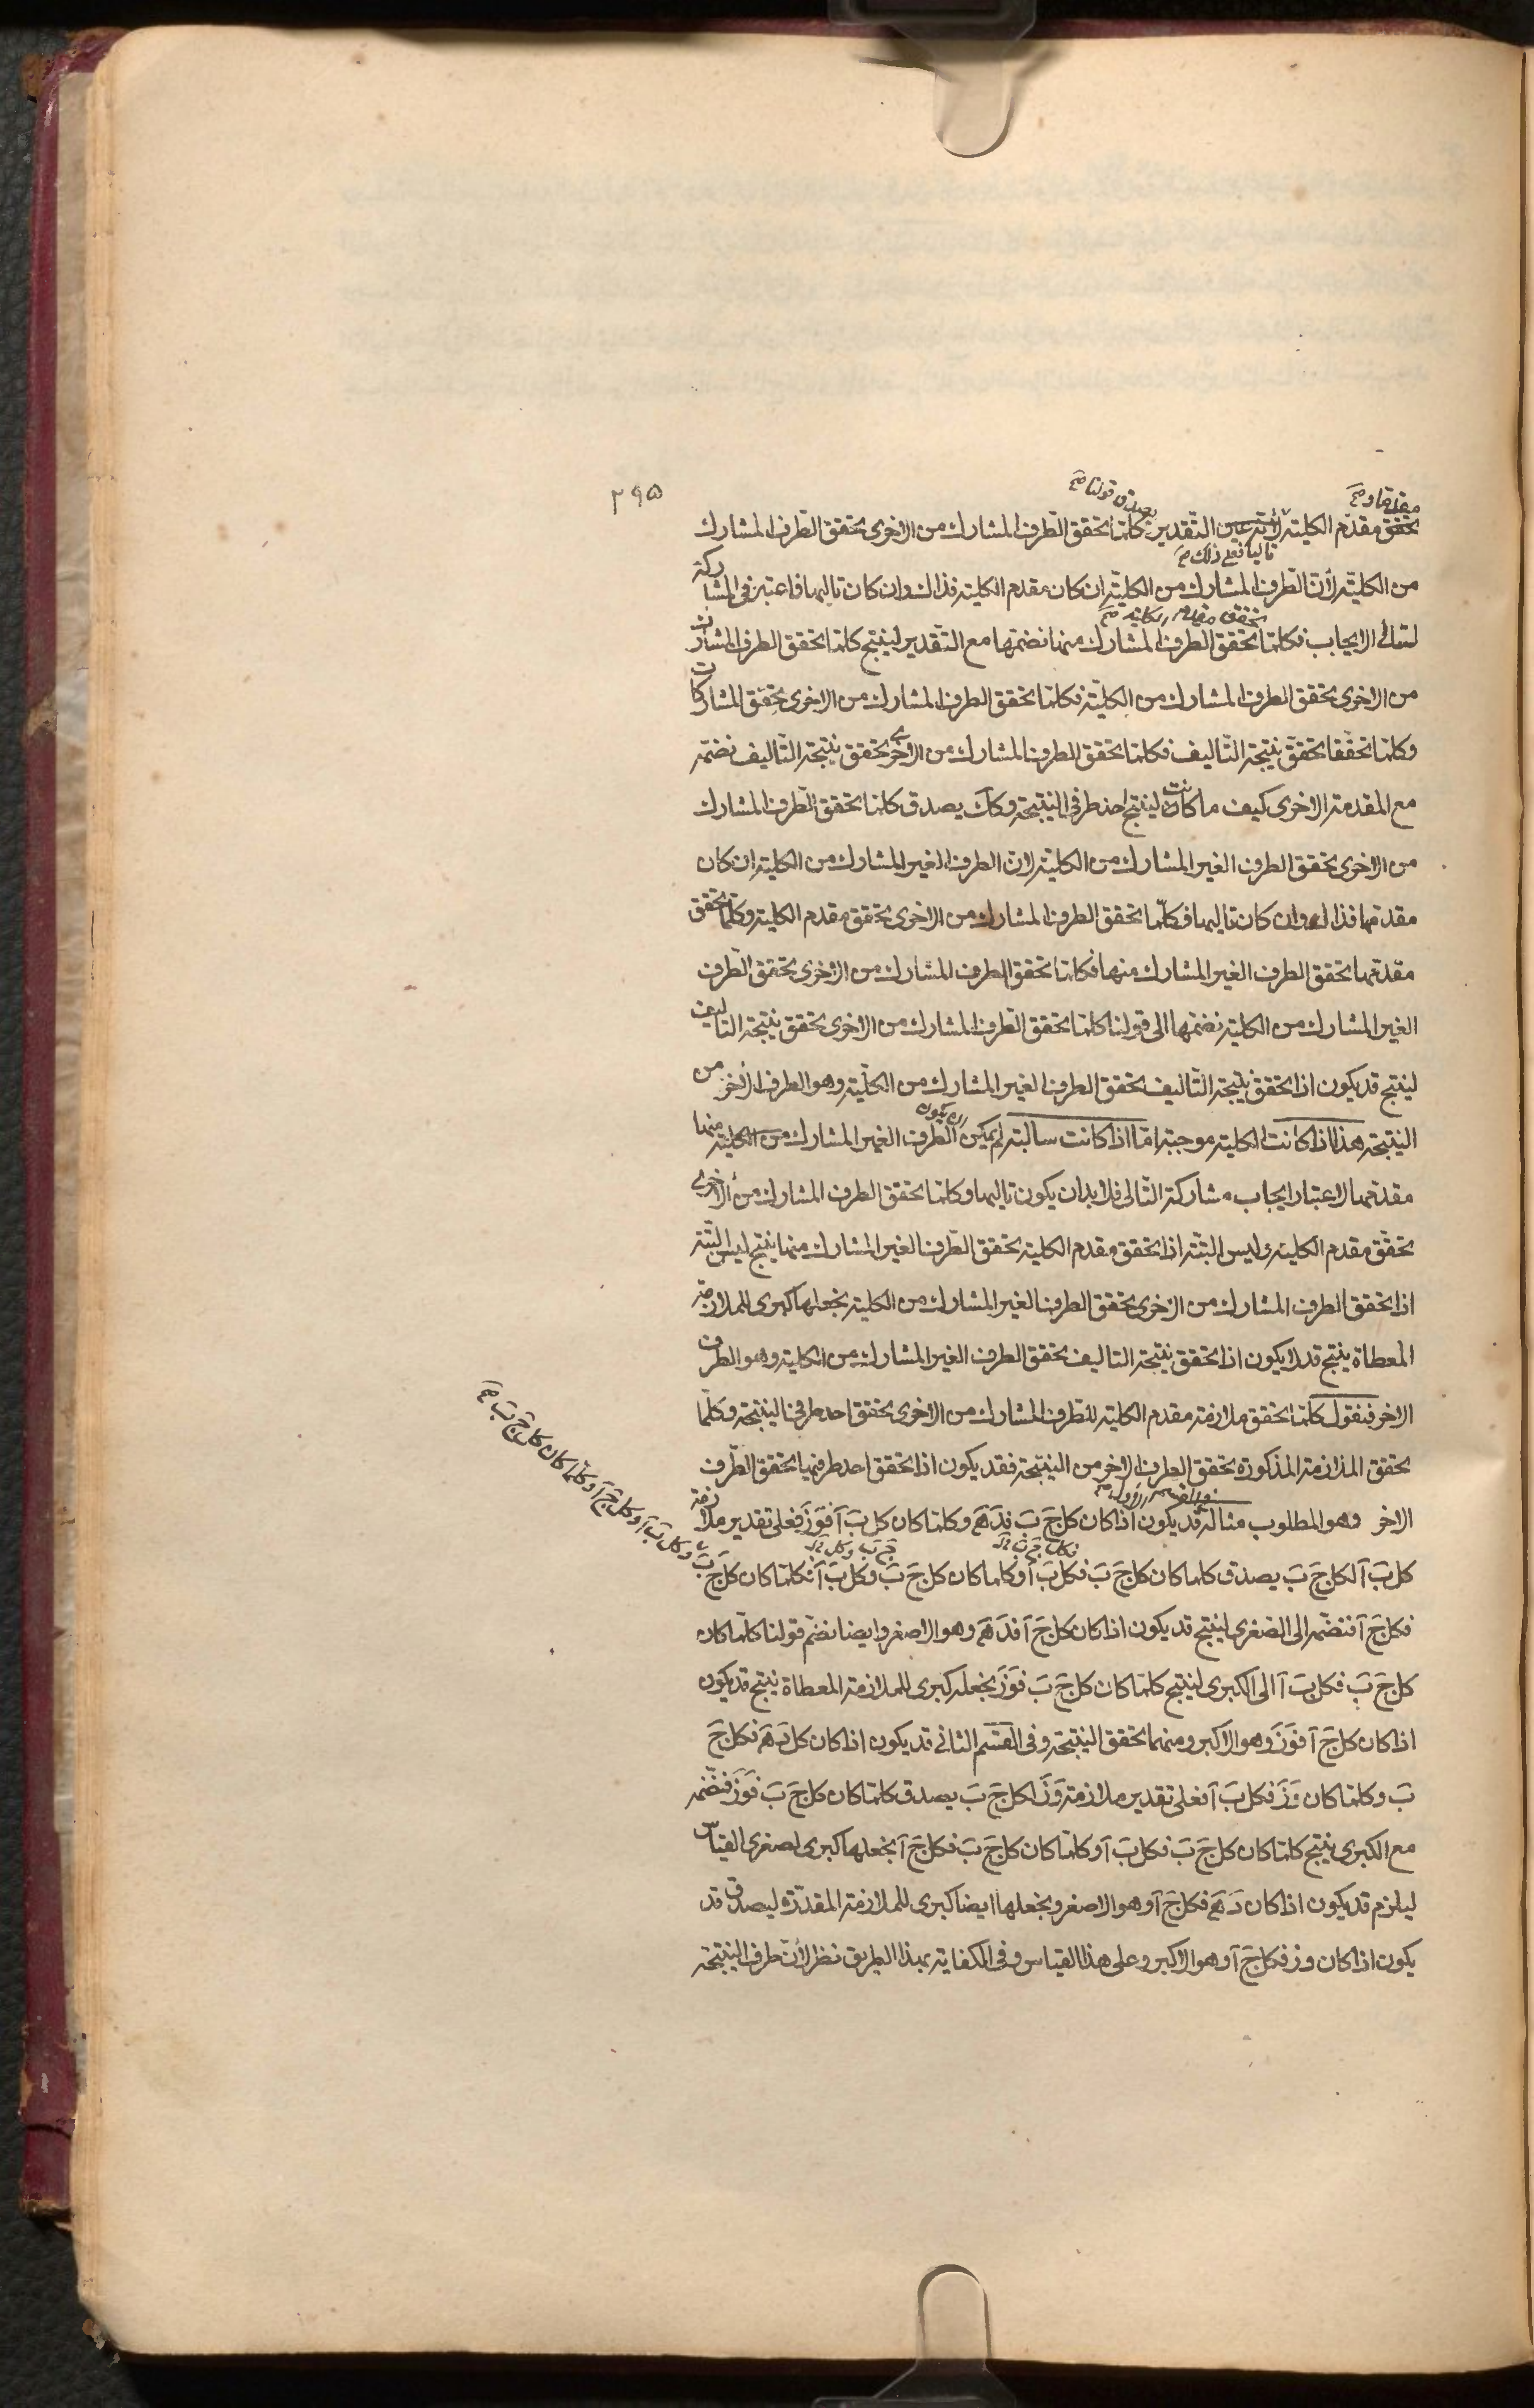 ٢٩٥
مقدمها و صح
يصدق قولنا صح
تحقق مقدم الكلية لانه على التقدير كلما تحقق الطرف المشارك من الاخرى تحقق الطرف المشارك
تاليها فعلى ذلك صح
من الكلية لأن الطرف المشارك من الكلية ان كان مقدم الكلية فذاك وان كان تاليها فاعتبر فى المشاركة
تحقق مقدم الكلية صح
لتالى الايجاب فكلما تحقق الطرف المشارك منها نضمها مع التقدير لينتج كلما تحقق الطرف المشارك
من الاخرى تحقق الطرف المشارك من الكلية فكلما تحقق الطرف المشارك من الاخرى تحقق المشاركات
وكلما تحققا تحقق نتيجة التاليف فكلما تحقق الطرف المشارك من الاخرى تحقق نتيجة التاليف نضمه
مع المقدمة الاخرى كيف ما كانت لينتج احد طرفى النتيجة وكك يصدق كلما تحقق الطرف المشارك
من الاخرى تحقق الطرف الغير المشارك من الكلية لان الطرف الغير المشارك من الكلية ان كان
مقدمها فذاك وان كان تاليها فكلما تحقق الطرف المشارك من الاخرى تحقق مقدم الكلية وكلما تحقق
مقدمها تحقق الطرف الغير المشارك منها فكلما تحقق الطرف المشارك من الاخرى تحقق الطرف
الغير المشارك من الكلية نضمها الى قولنا كلما تحقق الطرف المشارك من الاخرى تحقق نتيجة التاليف
لينتج قد يكون اذا تحقق نتيجة التاليف تحقق الطرف الغير المشارك من الكلية وهو الطرف الاخر من
النتيجة هذا اذا كانت الكلية موجبة امّا اذا كانت سالبة لم يمكن ان يكون الطرف الغير المشارك من الكلية منها
مقدمها لاعتبار ايجاب مشاركة التالى فلا بد ان يكون تاليها وكلما تحقق الطرف المشارك من الاخرى
تحقق مقدم الكلية وليس البتة اذا تحقق مقدم الكلية تحقق الطرف الغير المشارك منها ينتج ليس البتة
اذا تحقق الطرف المشارك من الاخرى تحقق الطرف الغير المشارك من الكلية نجعلها كبرى للملازمة
المعطاة ينتج قد لا يكون اذا تحقق نتيجة التاليف تحقق الطرف الغير المشارك من الكلية وهو الطرف
الاخر فنقول كلما تحقق ملازمة مقدم الكلية للطرف المشارك من الاخرى تحقق احد طرفى النتيجة وكلما
تحقق الملازمة المذكورة تحقق الطرف الاخر من النتيجة فقد يكون اذا تحقق احد طرفيها تحقق الطرف
الاخر وهو المطلوب مثاله قد يكون اذا كان كل جَ بَ فدَهَ وكلما كان كل بَ آ فوَزَ فعلى تقدير ملازمة
كل بَ آ لكل جَ بَ يصدق كلما كان كل جَ بَ فكل بَ آ وكلما كان كل جَ بَ وكل بَ آ فكلما كان كل جَ بَ
وكل بَ آ وكل جَ آ وكلما كان كل جَ بَ صح
فكل جَ آ فنضمه الى الصغرى لينتج قد يكون اذا كان كل جَ آ فدَهَ وهو الاصغر وايضا نضم قولنا كلما كان
كل جَ بَ فكل بَ آ الى الكبرى لينتج كلما كان كل جَ بَ فوَزَ نجعله كبرى للملازمة المعطاة ينتج قد يكون
اذا كان كل جَ آ فوَزَ وهو الاكبر ومنهما تحقق النتيجة وفى القسم الثانى قد يكون اذا كان كل دَهَ فكل جَ
بَ وكلما كان وَزَ فكل بَ آ فعلى تقدير ملازمة وَزَ لكل جَ بَ يصدق كلما كان كل جَ بَ فوَزَ فنضمه
مع الكبرى ينتج كلما كان كل جَ بَ فكل بَ آ وكلما كان كل جَ بَ فكل جَ آ نجعلها كبرى لصغرى القياس
ليلزم قد يكون اذا كان دَهَ فكل جَ آ وهو الاصغر ونجعلها ايضا كبرى للملازمة المقدرة ليصدق قد
يكون اذا كان وز فكل جَ آ وهو الاكبر وعلى هذا القياس وفى الكفاية بهذا الطريق نظر لأن طرف النتيجة